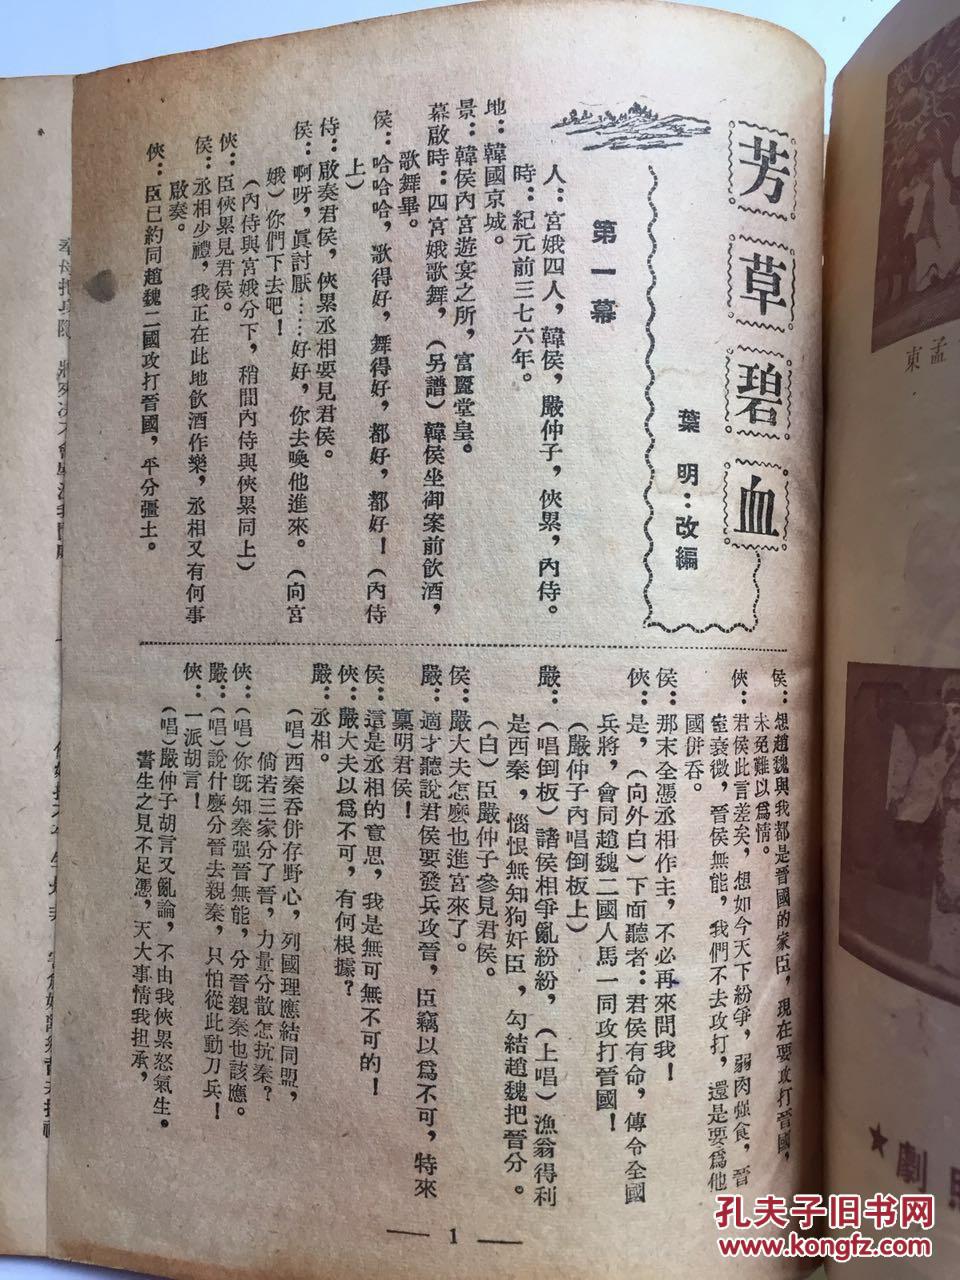 芳草碧血
葉明：改編
第一幕
人：宮娥四人，韓侯，嚴仲子，俠累，內侍。
時：紀元前三七六年。
地：韓國京城。
景：韓侯內宮遊宴之所，富麗堂皇。
幕啟時：四宮娥歌舞，（另譜）韓侯坐御案前飲酒，
歌舞畢。
侯：哈哈哈，歌得好，舞得好，都好，都好！（內侍
上）
侍：啟奏君侯，俠累丞相要見君侯。
侯：啊呀，眞討厭……好好，你去喚他進來。（向宮
娥）你們下去吧！
（內侍與宮娥分下，稍間內侍與俠累同上）
俠：臣俠累見君侯。
侯：丞相少禮，我正在此地飲酒作樂，丞相又有何事
啟奏。
俠：臣已約同趙魏二國攻打晉國，平分疆土。
侯：想趙魏與我都是晉國的家臣，現在要攻打晉國，
未免難以爲情。
俠：君侯此言差矣，想如今天下紛爭，弱肉强食，晉
室衰微，晉侯無能，我們不去攻打，還是要爲他
國併吞。
侯：那末全憑丞相作主，不必再來問我！
俠：是，（向外白）下面聽者：君侯有命，傳令全國
兵將，會同趙魏二國人馬一同攻打晉國！
（嚴仲子內唱倒板上）
嚴：（唱倒板）諸侯相爭亂紛紛，（上唱）漁翁得利
是西秦，惱恨無知狗奸臣，勾結趙魏把晉分。
（白）臣嚴仲子參見君侯。
侯：嚴大夫怎麽也進宮來了。
嚴：適才聽說君侯要發兵攻晉，臣竊以爲不可，特來
稟明君侯！
侯：這是丞相的意思，我是無可無不可的！
俠：嚴大夫以爲不可，有何根據？
嚴：丞相。
（唱）西秦吞併存野心，列國理應結同盟，
倘若三家分了晉，力量分散怎抗秦？
俠：（唱）你旣知秦强晉無能，分晉親秦也該應。
嚴：（唱）說什麽分晉去親秦，只怕從此動刀兵！
俠：一派胡言！
（唱）嚴仲子胡言又亂論，不由我俠累怒氣生。
書生之見不足憑，天大事情我担承，
— 1 —
東孟
★劇照
孔夫子旧书网
www.kongfz.com